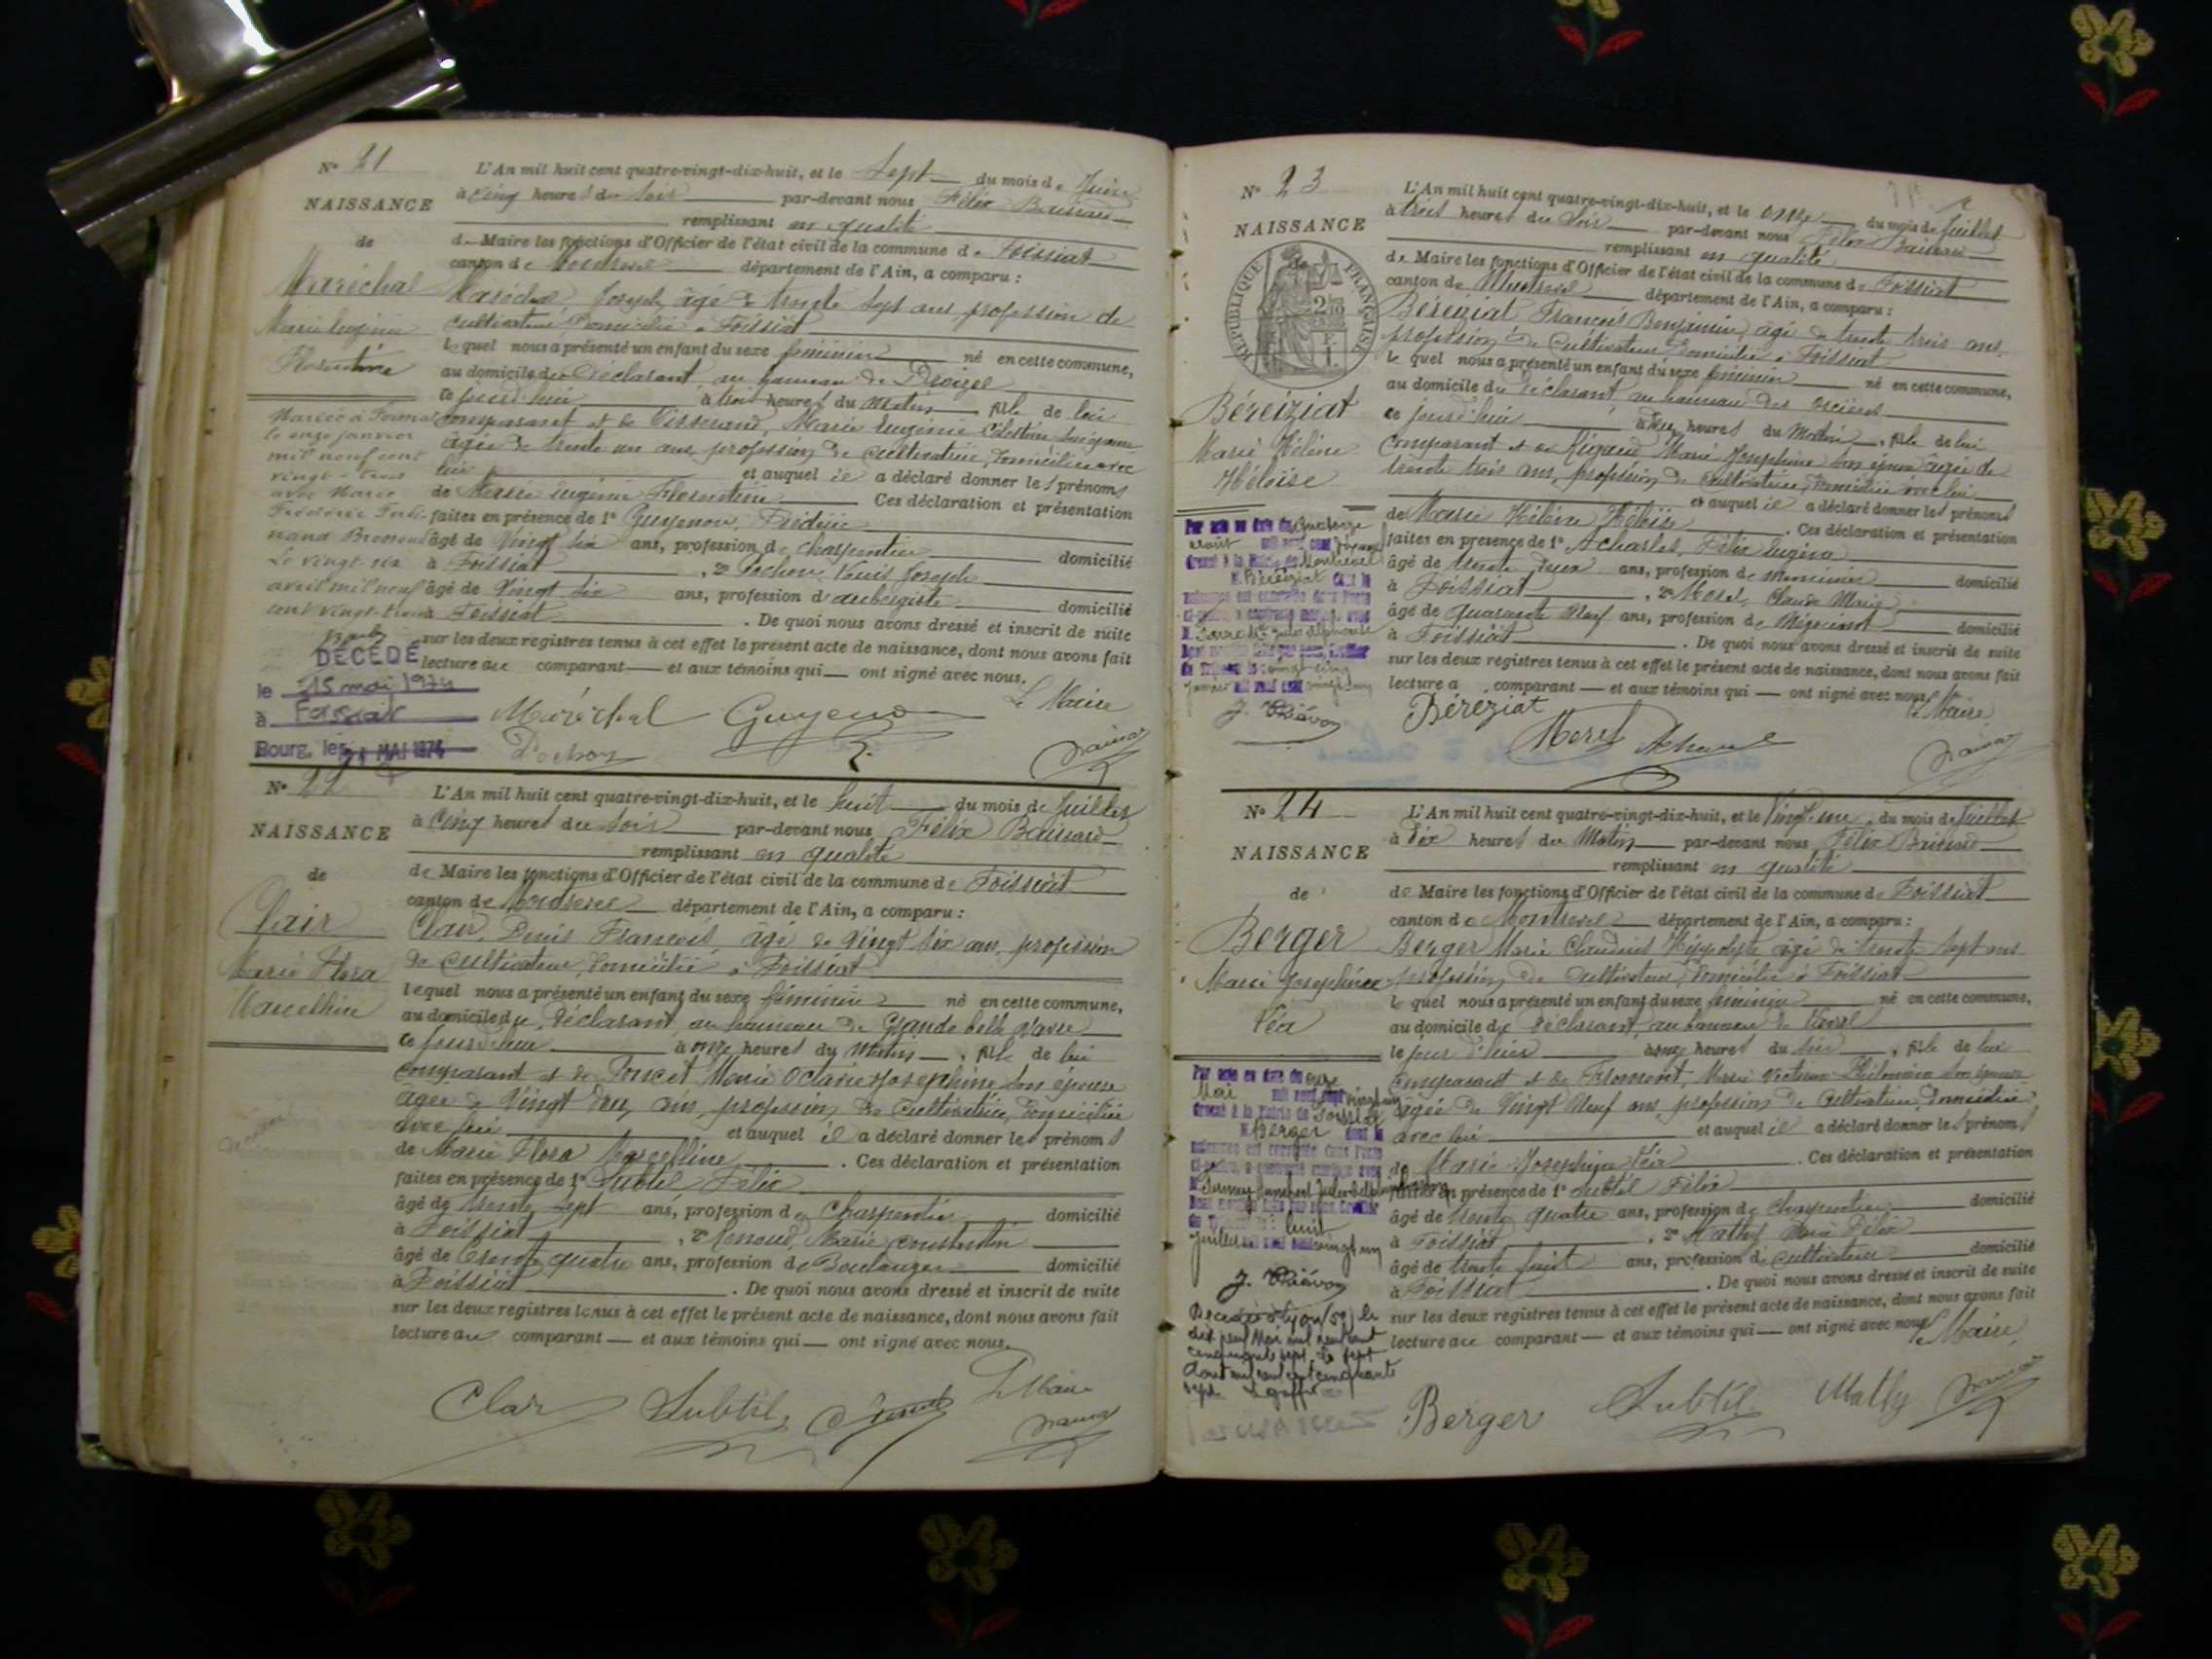 N° 21
NAISSANCE
de
Maréchal
Marie Eugénie
Florentine
Mariée à
le onze janvier
mil neuf cent
vingt-trois
avec Marie
Frédéric
Le vingt-six
avril mil neuf
cent vingt-trois
DÉCÉDÉ
le 15 mai 1974
à Foissiat
Bourg, le 21 MAI 1974
L'An mil huit cent quatre-vingt-dix-huit, et le Sept du mois de Juin
à Cinq heures du soir par-devant nous Félix
remplissant en qualité
de Maire les fonctions d'Officier de l'état civil de la commune de Foissiat
canton de Montrevel département de l'Ain, a comparu :
Maréchal Joseph âgé de trente sept ans profession de
cultivateur domicilié à Foissiat
lequel nous a présenté un enfant du sexe féminin né en cette commune,
au domicile du déclarant au hameau de
ce jourd'hui à trois heures du matin, fille de lui
comparant et de Tisserand, Marie Eugénie Célestine son épouse
âgée de trente un ans, profession de cultivatrice, domiciliée avec
lui et auquel il a déclaré donner les prénoms
de Marie Eugénie Florentine Ces déclaration et présentation
faites en présence de 1° Guyenon, Frédéric
âgé de Vingt six ans, profession de charpentier domicilié
à Foissiat, 2° Pochon Louis Joseph
âgé de Vingt six ans, profession d'aubergiste domicilié
à Foissiat. De quoi nous avons dressé et inscrit de suite
sur les deux registres tenus à cet effet le présent acte de naissance, dont nous avons fait
lecture au comparant — et aux témoins qui — ont signé avec nous.
Maréchal Guyenon Le Maire
Pochon
N° 22
NAISSANCE
de
Clair
Marie Flora
Marcelline
L'An mil huit cent quatre-vingt-dix-huit, et le huit du mois de Juillet
à Cinq heures du soir par-devant nous Félix
remplissant en qualité
de Maire les fonctions d'Officier de l'état civil de la commune de Foissiat
canton de Montrevel département de l'Ain, a comparu :
Clair, Denis François, âgé de vingt six ans, profession
de cultivateur, domicilié à Foissiat
lequel nous a présenté un enfant du sexe féminin né en cette commune,
au domicile du déclarant au hameau de Grande
ce jourd'hui à onze heures du matin, fille de lui
comparant et de Poncet Marie Octavie Josephine son épouse
âgée de Vingt deux ans, profession de cultivatrice, domiciliée
avec lui et auquel il a déclaré donner les prénoms
de Marie Flora Marcelline. Ces déclaration et présentation
faites en présence de 1° Subtil Félix
âgé de trente sept ans, profession de Charpentier domicilié
à Foissiat, 2° Renoud, Marie Constantin
âgé de trente quatre ans, profession de Boulanger domicilié
à Foissiat. De quoi nous avons dressé et inscrit de suite
sur les deux registres tenus à cet effet le présent acte de naissance, dont nous avons fait
lecture au comparant — et aux témoins qui — ont signé avec nous.
Clair Subtil Le Maire
N° 23
NAISSANCE
de
RÉPUBLIQUE FRANÇAISE
Béreiziat
Marie Hélène
Héloïse
Par acte en date du quatorze
août mil neuf cent
dressé à la Mairie de Montrevel
M. Béreiziat dont la
naissance est constatée dans l'acte
ci-contre, a contracté mariage avec
M. Jules Alphonse
vingt cinq
janvier mil neuf cent vingt un
L'An mil huit cent quatre-vingt-dix-huit, et le onze du mois de Juillet
à trois heures du soir par-devant nous Félix
remplissant en qualité
de Maire les fonctions d'Officier de l'état civil de la commune de Foissiat
canton de Montrevel département de l'Ain, a comparu :
Béreiziat François Benjamin, âgé de trente trois ans,
profession de cultivateur domicilié à Foissiat
lequel nous a présenté un enfant du sexe féminin né en cette commune,
au domicile du déclarant au hameau des
ce jourd'hui à deux heures du matin, fille de lui
comparant et de Rigaud Marie Josephine son épouse âgée de
trente trois ans, profession de cultivatrice, domiciliée avec lui
et auquel il a déclaré donner les prénoms
de Marie Hélène Héloïse. Ces déclaration et présentation
faites en présence de 1° Acharles, Félix Eugène
âgé de trente deux ans, profession de menuisier domicilié
à Foissiat, 2° Morel, Claude Marie
âgé de quarante neuf ans, profession de Négociant domicilié
à Foissiat. De quoi nous avons dressé et inscrit de suite
sur les deux registres tenus à cet effet le présent acte de naissance, dont nous avons fait
lecture a comparant — et aux témoins qui — ont signé avec nous.
Béréziat Le Maire
Morel
N° 24
NAISSANCE
de
Berger
Marie Josephine
Léa
Par acte en date du onze
Mai mil neuf cent vingt un
dressé à la Mairie de Foissiat
M. Berger dont la
naissance est constatée dans l'acte
ci-contre, a contracté mariage avec
huit
juillet mil neuf cent vingt un
Décédée à Lyon (5e) le
dix neuf Mai mil neuf cent
cinquante sept. Le sept
Août mil neuf cent cinquante
sept.
L'An mil huit cent quatre-vingt-dix-huit, et le Vingt un du mois de Juillet
à dix heures du Matin par-devant nous Félix
remplissant en qualité
de Maire les fonctions d'Officier de l'état civil de la commune de Foissiat
canton de Montrevel département de l'Ain, a comparu :
Berger Marie Claudius Hippolyte âgé de trente sept ans
profession de cultivateur, domicilié à Foissiat
lequel nous a présenté un enfant du sexe féminin né en cette commune,
au domicile du déclarant au hameau de
le jour d'hier à onze heures du soir, fille de lui
comparant et de Froment, Marie Victorine Philomène son épouse
âgée de Vingt neuf ans, profession de cultivatrice, domiciliée
avec lui et auquel il a déclaré donner les prénoms
de Marie Josephine Léa. Ces déclaration et présentation
faites en présence de 1° Subtil Félix
âgé de trente quatre ans, profession de Charpentier domicilié
à Foissiat, 2° Mathy Félix
âgé de trente huit ans, profession de cultivateur domicilié
à Foissiat. De quoi nous avons dressé et inscrit de suite
sur les deux registres tenus à cet effet le présent acte de naissance, dont nous avons fait
lecture au comparant — et aux témoins qui — ont signé avec nous.
Le Maire
Berger Subtil Mathy